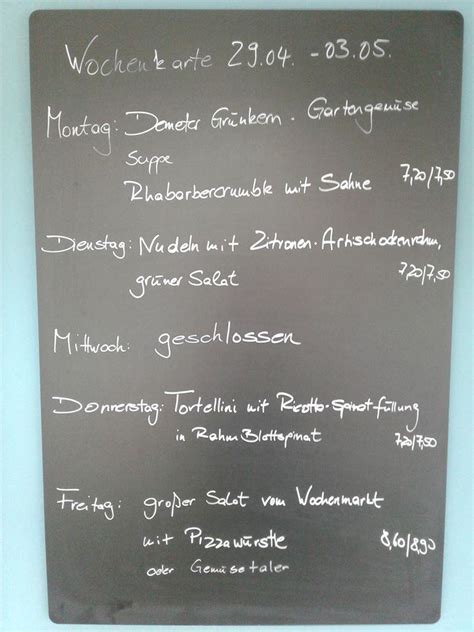 Wochenkarte 29.04. - 03.05.
Montag: Demeter Grünkern - Gartengemüse
suppe
Rhaborbercrumble mit Sahne 7,20/7,50
Dienstag: Nudeln mit Zitronen-Artischockenrahm,
grüner Salat 7,20/7,50
Mittwoch: geschlossen
Donnerstag: Tortellini mit Ricotta-Spinatfüllung
in Rahm Blattspinat 7,20/7,50
Freitag: großer Salat vom Wochenmarkt
mit Pizzawürstle 8,60/8,90
oder Gemüsetaler